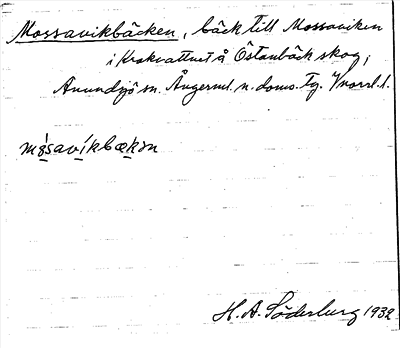 Mossavikbäcken, bäck till Mossaviken
i Krokvattnet å Östanbäck skog;
Anundsjö sn. Ångerml. n. doms. Tg.
mòsavíkbækən
H. A. Söderberg 1932